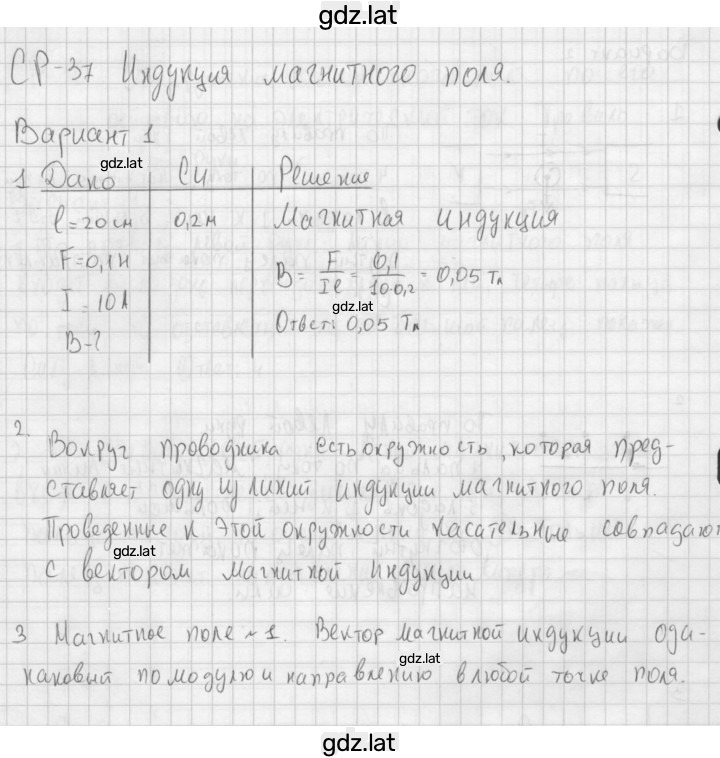 gdz.lat
СР-37 Индукция магнитного поля.
Вариант 1
gdz.lat
1 Дано СИ Решение
l=20см 0,2м Магнитная индукция
F=0,1Н B = F/Il = 0,1/10·0,2 = 0,05 Тл
gdz.lat
I=10А Ответ: 0,05 Тл
B-?
2.
Вокруг проводника есть окружность, которая пред-
ставляет одну из линий индукции магнитного поля.
Проведенные к этой окружности касательные совпадают
gdz.lat
с вектором магнитной индукции
3 Магнитное поле ~ 1. Вектор магнитной индукции оди-
gdz.lat
наковый по модулю и направлению в любой точке поля.
gdz.lat